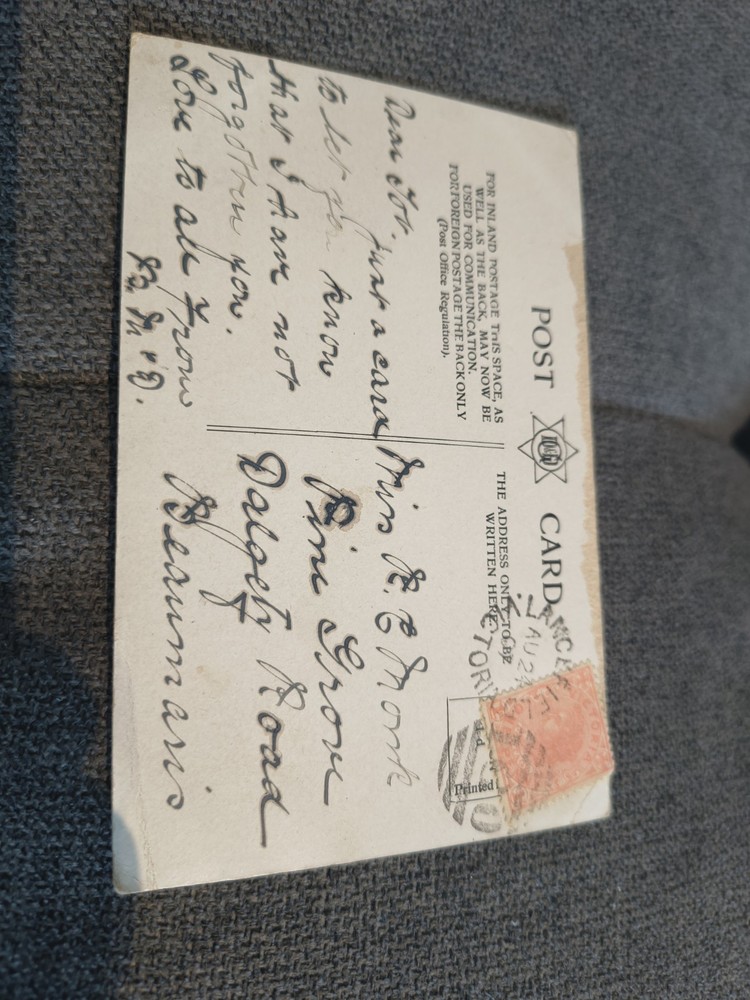 POST CARD
FOR INLAND POSTAGE THIS SPACE, AS
WELL AS THE BACK, MAY NOW BE
USED FOR COMMUNICATION.
FOR FOREIGN POSTAGE THE BACK ONLY
(Post Office Regulation).
THE ADDRESS ONLY TO BE
WRITTEN HERE.
Printed
Dear
Just a card
to let you know
that I have not
forgotten you.
Love to all From
Miss R. E Monk
Pine Grove
Dalgety Road
Beaumaris